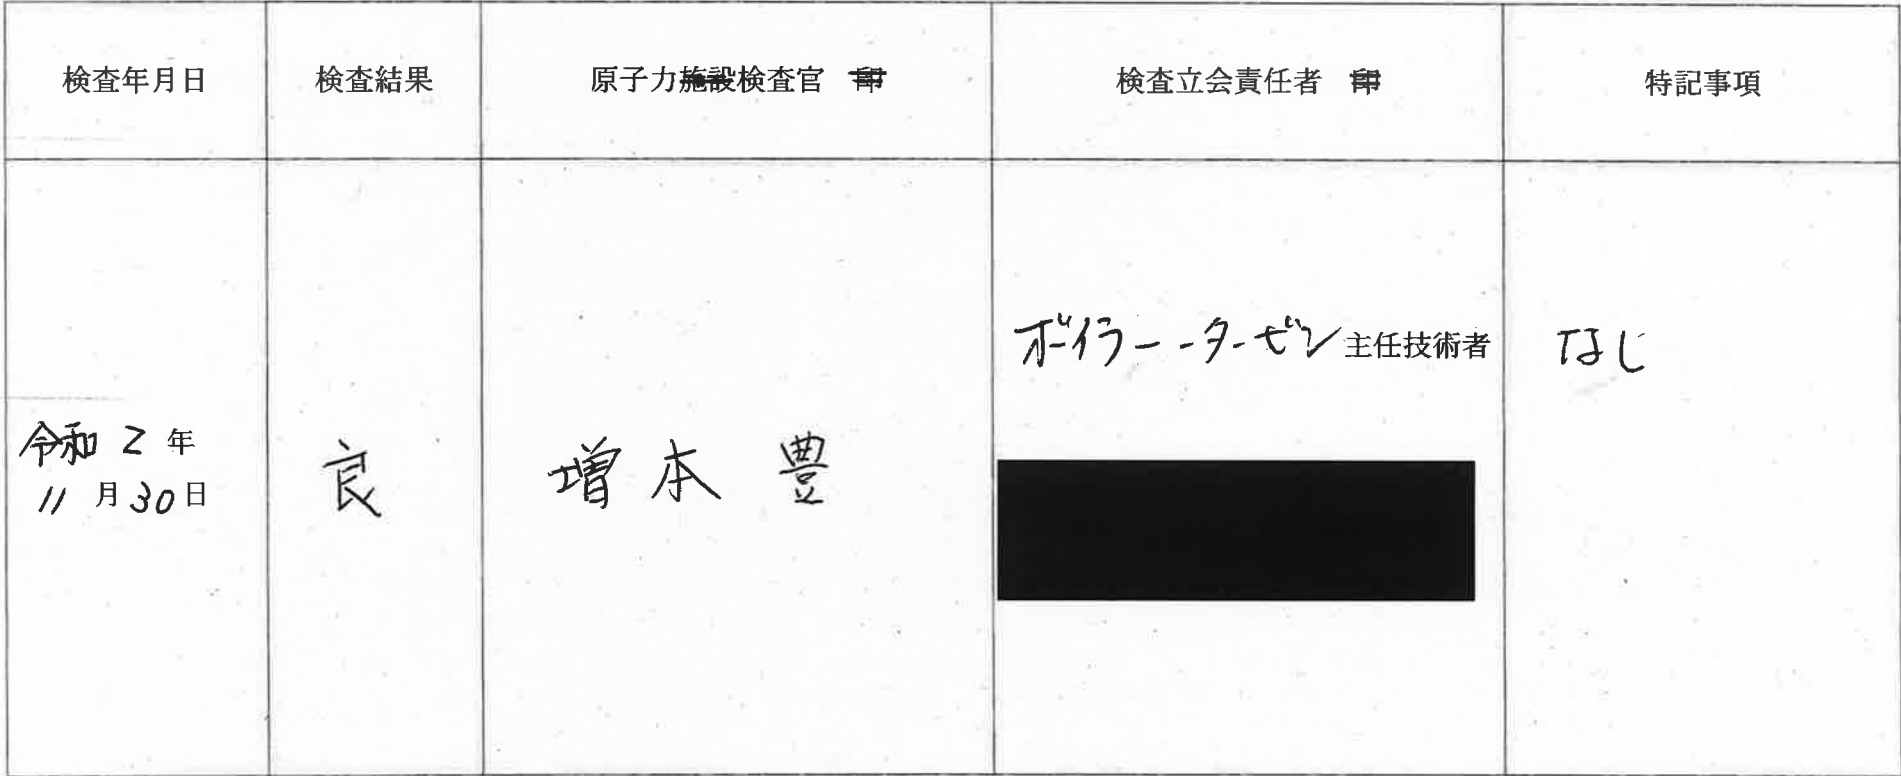 検査年月日
検査結果
原子力施設検査官 印
検査立会責任者 印
特記事項
令和 2 年
11 月 30 日
良
増本 豊
ボイラー・タービン主任技術者
なし